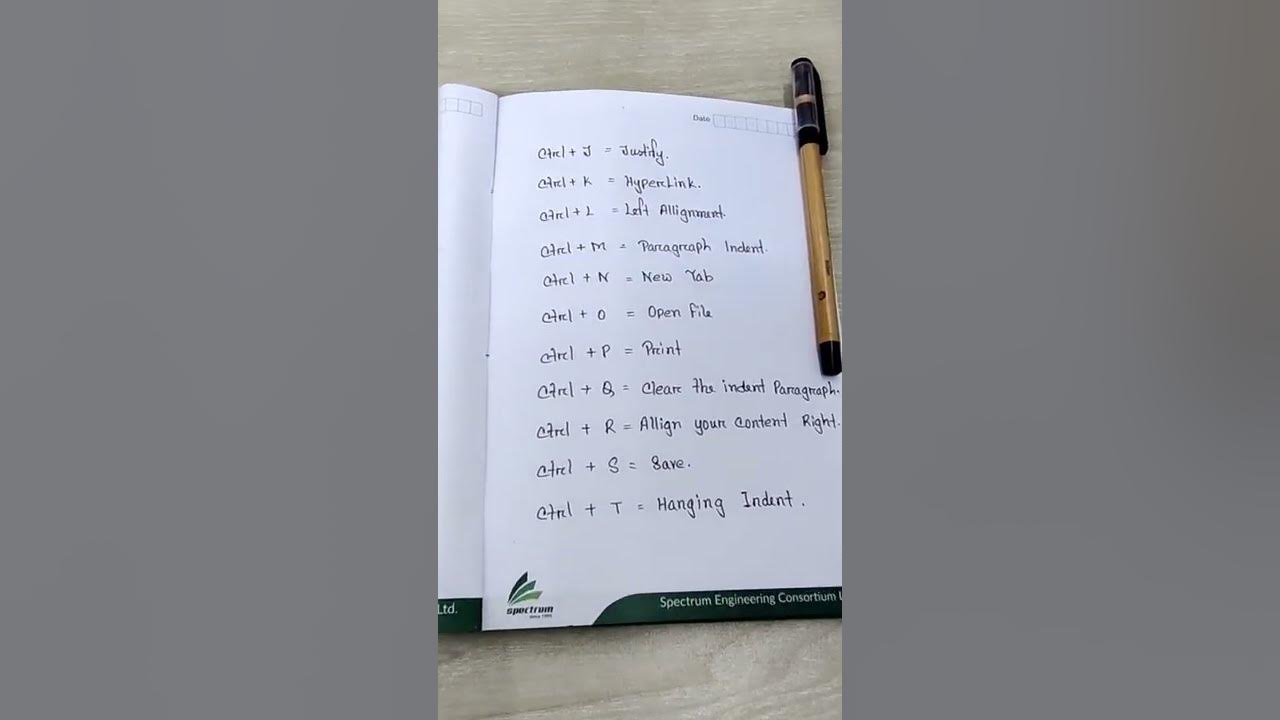 Date
Ctrl + J = Justify.
Ctrl + K = HyperLink.
Ctrl + L = Left Allignment.
Ctrl + M = Paragraph Indent.
Ctrl + N = New Tab
Ctrl + O = Open File
Ctrl + P = Print
Ctrl + Q = Clear the indent Paragraph.
Ctrl + R = Allign your Content Right.
Ctrl + S = Save.
Ctrl + T = Hanging Indent.
Ltd.
spectrum
since 1995
Spectrum Engineering Consortium